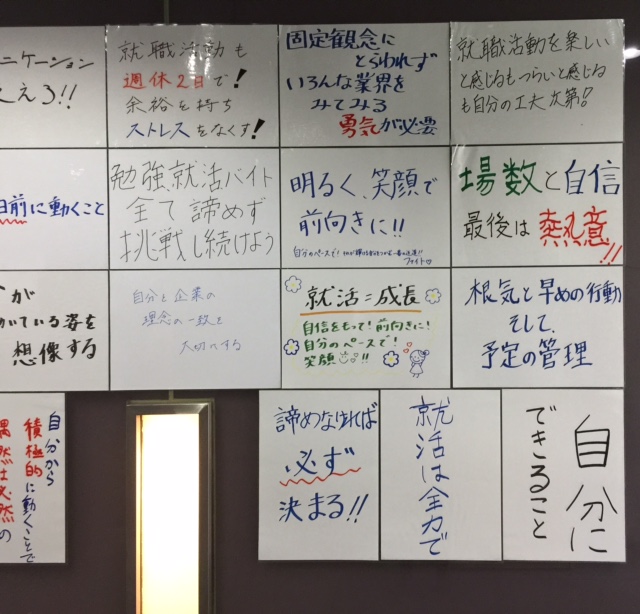 ニケーション
える!!
就職活動も
週休2日で!
余裕を持ち
ストレスをなくす!
固定観念に
とらわれず
いろんな業界を
みてみる
勇気が必要
就職活動を楽しい
と感じるもつらいと感じる
も自分の工夫次第!
前に動くこと
勉強、就活、バイト
全て諦めず
挑戦し続けよう
明るく、笑顔で
前向きに!!
自分のペースで!
ファイト♡
場数と自信
最後は熱意!!
が
いている姿を
想像する
自分と企業の
理念の一致を
大切にする
就活=成長
自信をもって!前向きに!
自分のペースで!
笑顔!!
根気と早めの行動
そして、
予定の管理
自分から
積極的に動くことで
偶然は必然の
諦めなければ
必ず
決まる!!
就活は全力で
自分に
できること